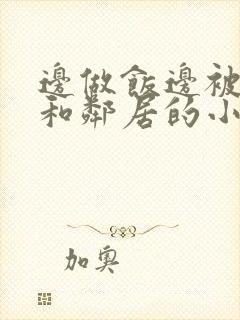 邊做飯邊被
和鄰居的小
加奧